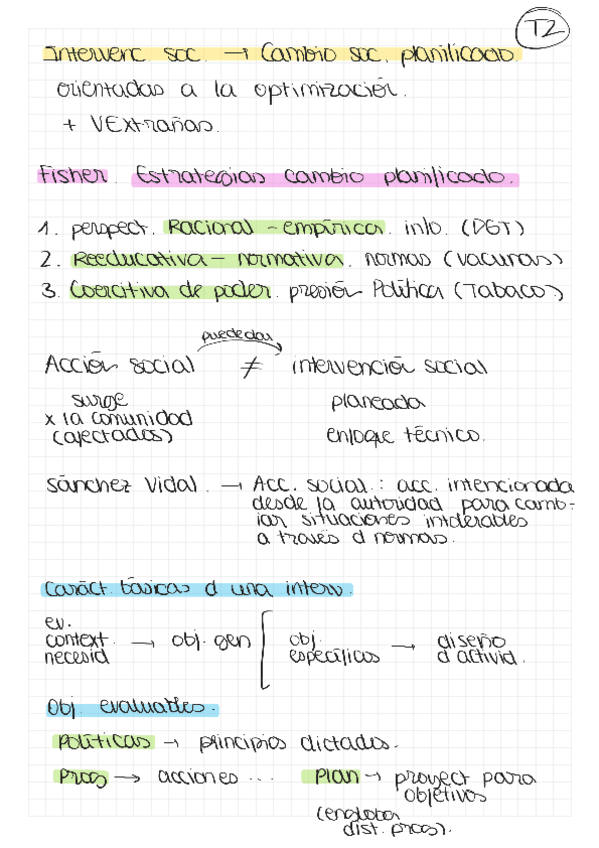 T2
Intervenc soc. → Cambio soc. planificado.
orientadas a la optimización.
+ VExtrañas.
Fisher. Estrategias cambio planificado.
1. perspect. Racional - empírica. info. (DGT)
2. Reeducativa - normativa. normas (vacunas)
3. Coercitiva de poder. presión Política (Tabaco)
puede dar
Acción social ≠ intervención social
surge planeada
x la comunidad
(afectados) enfoque técnico.
Sánchez Vidal. → Acc. social: acc. intencionada
desde la autoridad para camb-
iar situaciones intolerables
a través d normas.
Caráct. básicas d una interv.
ev.
context. → obj. gen [ obj. → diseño
necesid específicos d activid.
Obj. evaluables.
Políticas → principios dictados.
Prog → acciones ... Plan → proyect para
objetivos
(engloba
dist. progs).